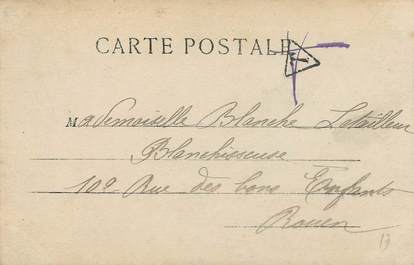 CARTE POSTALE
T
Mademoiselle Blanche Letailleur
Blanchisseuse
109 Rue des bons Enfants
Rouen
19